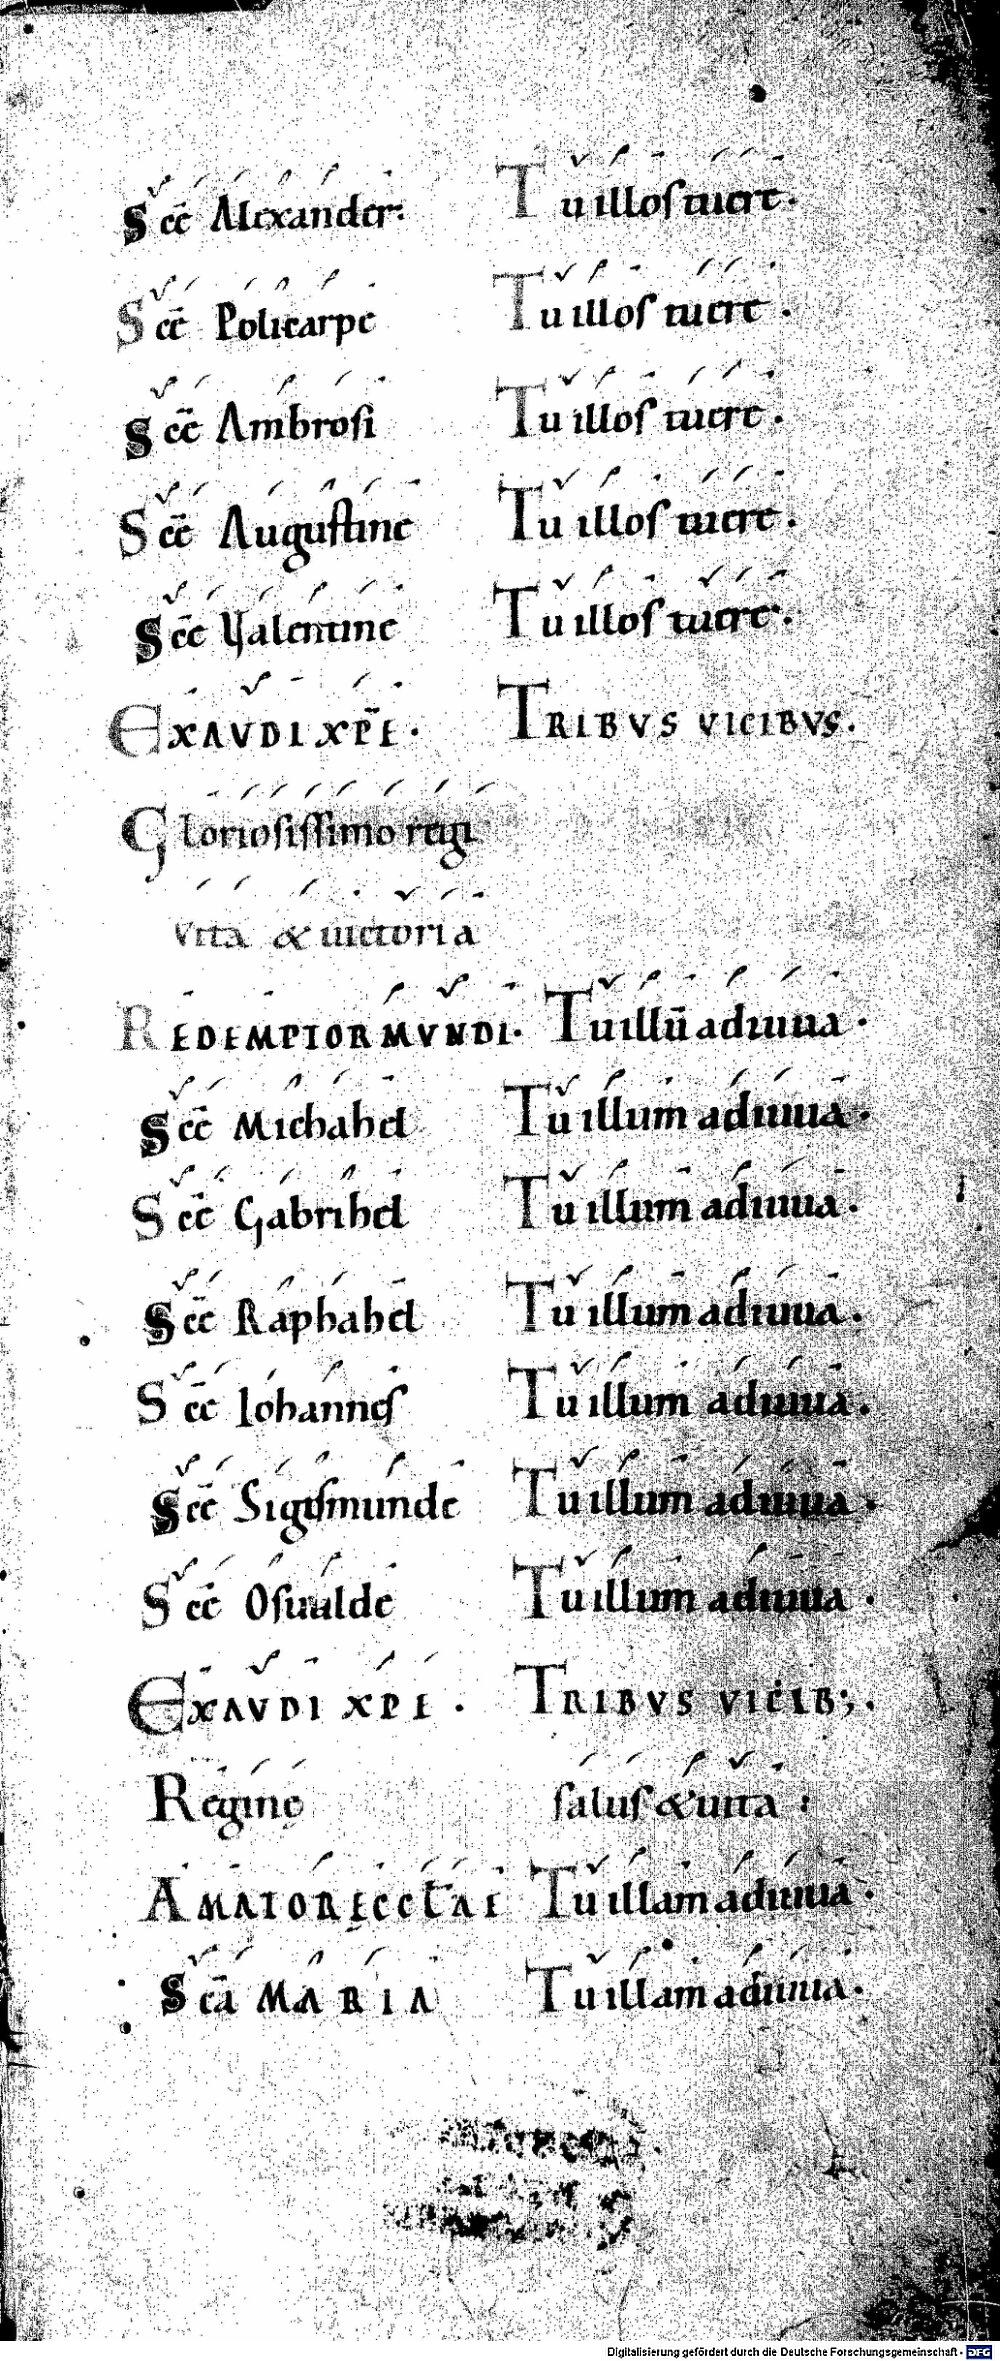 Scē Alexander. Tu illos tuere.
Scē Policarpe Tu illos tuere.
Scē Ambrosi Tu illos tuere.
Scē Augustine Tu illos tuere.
Scē Valentine Tu illos tuere.
EXAVDI XPE. TRIBVS VICIBVS.
Gloriosissimo regi
vita & uictoria
REDEMPTOR MVNDI. Tu illū adiuua.
Scē Michahel Tu illum adiuua.
Scē Gabrihel Tu illum adiuua.
Scē Raphahel Tu illum adiuua.
Scē Iohannes Tu illum adiuua.
Scē Sigismunde Tu illum adiuua.
Scē Osuualde Tu illum adiuua.
EXAVDI XPE. TRIBVS VICIB;.
Reginę salus & uita :
AMATOR ĘCCŁAE Tu illam adiuua.
Scā MARIA Tu illam adiuua.
Digitalisierung gefördert durch die Deutsche Forschungsgemeinschaft - DFG